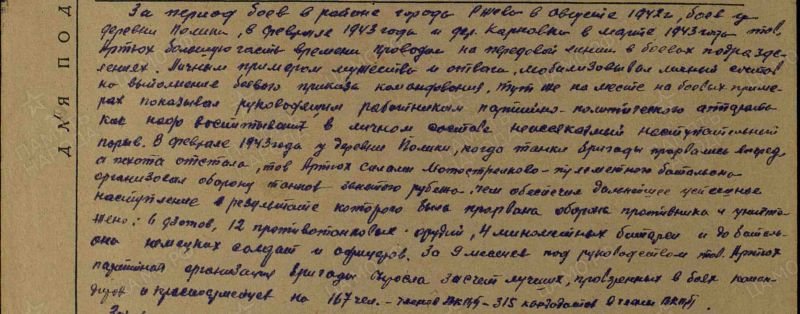 За период боев в районе города Ржева в августе 1942 г, боев у
деревни Полики, в феврале 1943 года и дер. Карповки в марте 1943 года тов.
Артюх большую часть времени проводил на передовой линии в боевых подразде-
лениях. Личным примером мужества и отваги, мобилизовывал личный состав
на выполнение боевого приказа командования. Тут же на месте на боевых приме-
рах показывал руководящим работникам партийно-политического аппарата
как надо воспитывать в личном составе неиссякаемый наступательный
порыв. В феврале 1943 года у деревни Полики, когда танки бригады прорвались вперед
а пехота отстала, тов Артюх силами мотострелково-пулеметного батальона
организовал оборону танков занятого рубежа. Чем обеспечил дальнейшее успешное
наступление в результате которого была прорвана оборона противника и уничто-
жено: 6 дзотов, 12 противотанковых орудий, 4 минометных батареи и до баталь-
она немецких солдат и офицеров. За 9 месяцев под руководством тов. Артюх
партийная организация бригады выросла за счет лучших, проверенных в боях коман-
диров и красноармейцев на 167 чел. - членов ВКП(б) - 315 кандидатов в члены ВКП(б).
ДЛЯ ПОД